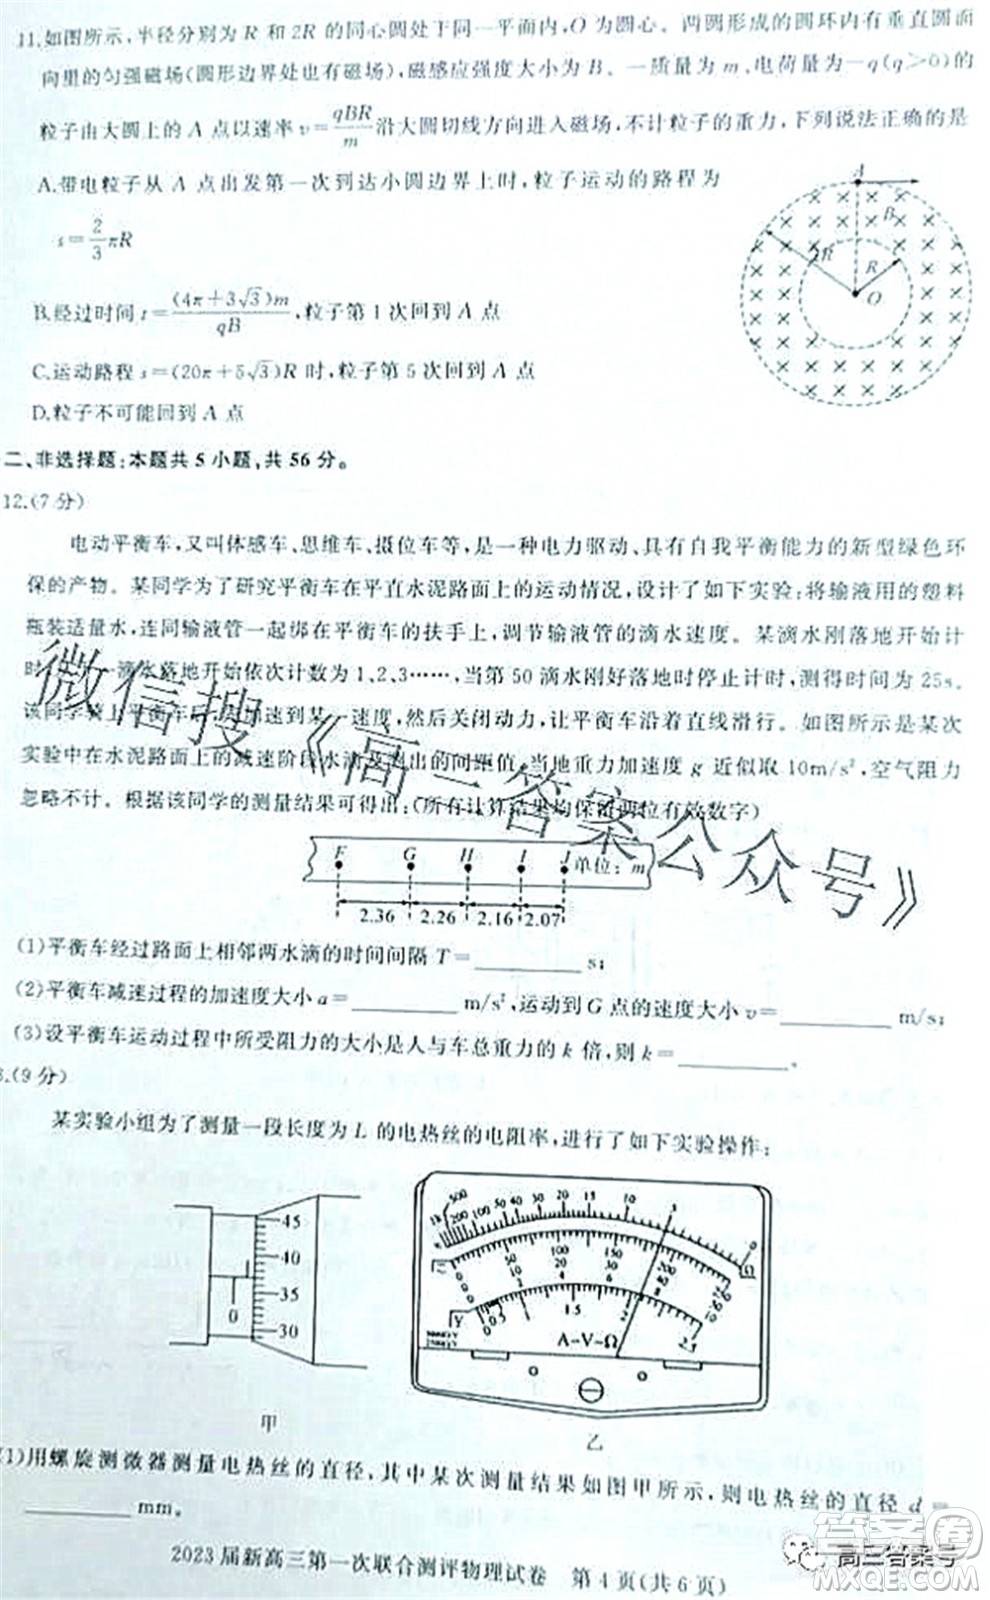 11.如图所示,半径分别为 R 和 2R 的同心圆处于同一平面内,O 为圆心。两圆形成的圆环内有垂直圆面
向里的匀强磁场(圆形边界处也有磁场),磁感应强度大小为 B。一质量为 m,电荷量为-q(q>0)的
粒子由大圆上的 A 点以速率 v=qBR/m 沿大圆切线方向进入磁场,不计粒子的重力,下列说法正确的是
A.带电粒子从 A 点出发第一次到达小圆边界上时,粒子运动的路程为
s=2/3 πR
B.经过时间 t=(4π+3√3)m/qB,粒子第 1 次回到 A 点
C.运动路程 s=(20π+5√3)R 时,粒子第 5 次回到 A 点
D.粒子不可能回到 A 点
A
B
R
R
O
二、非选择题:本题共 5 小题,共 56 分。
12.(7 分)
电动平衡车,又叫体感车、思维车、摄位车等,是一种电力驱动、具有自我平衡能力的新型绿色环
保的产物。某同学为了研究平衡车在平直水泥路面上的运动情况,设计了如下实验:将输液用的塑料
瓶装适量水,连同输液管一起绑在平衡车的扶手上,调节输液管的滴水速度。某滴水刚落地开始计
时,一滴水落地开始依次计数为 1,2,3……,当第 50 滴水刚好落地时停止计时,测得时间为 25s。
该同学骑上平衡车后加速到某一速度,然后关闭动力,让平衡车沿着直线滑行。如图所示是某次
实验中在水泥路面上的减速阶段水滴及测出的间距值,当地重力加速度 g 近似取 10m/s²,空气阻力
忽略不计。根据该同学的测量结果可得出:(所有计算结果均保留两位有效数字)
F G H I J 单位:m
2.36 2.26 2.16 2.07
(1)平衡车经过路面上相邻两水滴的时间间隔 T=______ s;
(2)平衡车减速过程的加速度大小 a=______ m/s²,运动到 G 点的速度大小 v=______ m/s;
(3)设平衡车运动过程中所受阻力的大小是人与车总重力的 k 倍,则 k=______。
3.(9 分)
某实验小组为了测量一段长度为 L 的电热丝的电阻率,进行了如下实验操作:
45
40
35
30
0
甲
1k 500 200 100 50 40 30 20 15 10 5 0 Ω
0 50 100 150 200
0 2 4 6
0 0.5 1.5 2
A-V-Ω
乙
(1)用螺旋测微器测量电热丝的直径,其中某次测量结果如图甲所示,则电热丝的直径 d=
______ mm。
2023 届新高三第一次联合测评物理试卷 第 4 页(共 6 页)
微信搜《高三答案公众号》
高三答案号
答案圈
MXQE.COM